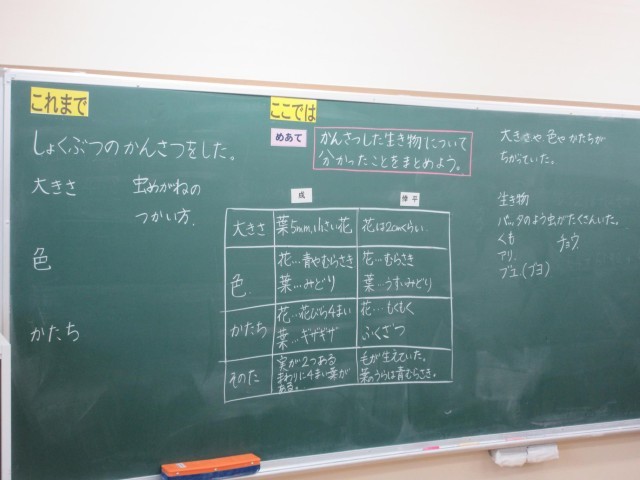 これまで
しょくぶつのかんさつをした。
大きさ 虫めがねの
つかい方.
色
かたち
ここでは
めあて
かんさつした生き物について
分かったことをまとめよう。
成 修平
大きさ 葉5mm,小さい花 花は2cmくらい
色 花…青やむらさき 花…むらさき
葉…みどり 葉…うすいみどり
かたち 花…花びら4まい 花…もくもく
葉…ギザギザ ふくざつ
そのた 実が2つある 毛が生えていた。
まわりに4まい葉が 葉のうらは青むらさき。
ある。
大きさや、色やかたちが
ちがっていた。
生き物
バッタのよう虫がたくさんいた。
くも チョウ
アリ
ブユ.(ブヨ)